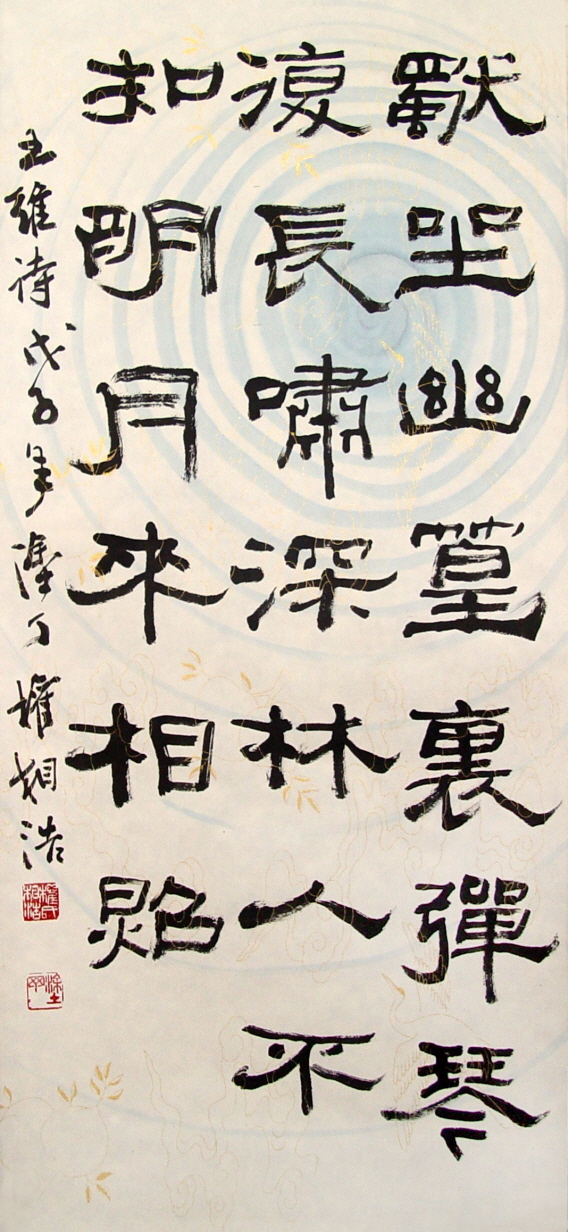 獨坐幽篁裏彈琴
復長嘯深林人不
知明月來相照
王維詩戊子年塗丁權相浩